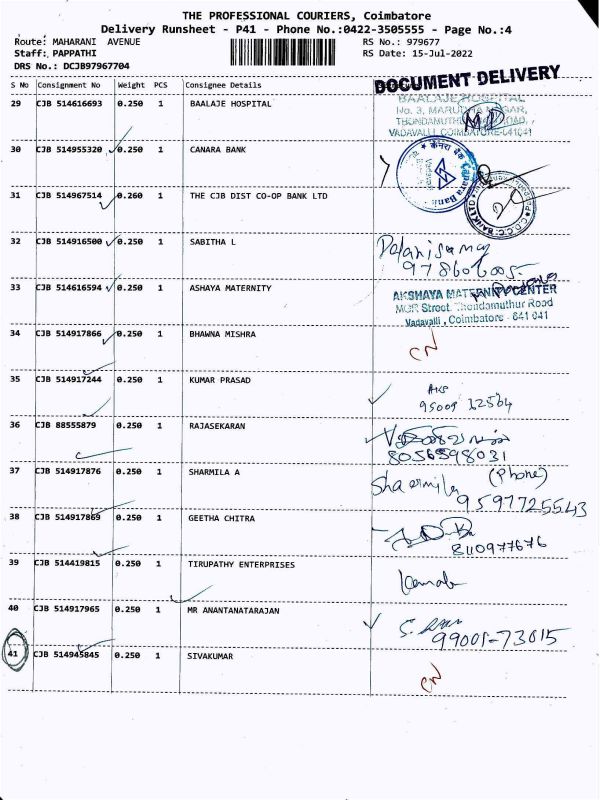 THE PROFESSIONAL COURIERS, Coimbatore
Delivery Runsheet - P41 - Phone No.:0422-3505555 - Page No.:4
Route: MAHARANI AVENUE
RS No.: 979677
Staff: PAPPATHI
RS Date: 15-Jul-2022
DRS No.: DCJB97967704
S No Consignment No Weight PCS Consignee Details
DOCUMENT DELIVERY
29 CJB 514616693 0.250 1 BAALAJE HOSPITAL
BAALAJE HOSPITAL
No. 3, MARUDHA NAGAR,
THONDAMUTHUR ROAD,
VADAVALLI, COIMBATORE-641041
30 CJB 514955320 0.250 1 CANARA BANK
केनरा बैंक Canara Bank
31 CJB 514967514 0.260 1 THE CJB DIST CO-OP BANK LTD
C.D.C.C. BANK LTD
32 CJB 514916500 0.250 1 SABITHA L
Palanisamy
33 CJB 514616594 0.250 1 ASHAYA MATERNITY
AKSHAYA MATERNITY CENTER
MGR Street, Thondamuthur Road
Vadavalli, Coimbatore - 641 041
34 CJB 514917866 0.250 1 BHAWNA MISHRA
CN
35 CJB 514917244 0.250 1 KUMAR PRASAD
36 CJB 88555879 0.250 1 RAJASEKARAN
8056598031
37 CJB 514917876 0.250 1 SHARMILA A
Sharmila (Phone)
9597725543
38 CJB 514917869 0.250 1 GEETHA CHITRA
8110977676
39 CJB 514419815 0.250 1 TIRUPATHY ENTERPRISES
40 CJB 514917965 0.250 1 MR ANANTANATARAJAN
99001-73015
41 CJB 514945845 0.250 1 SIVAKUMAR
CN